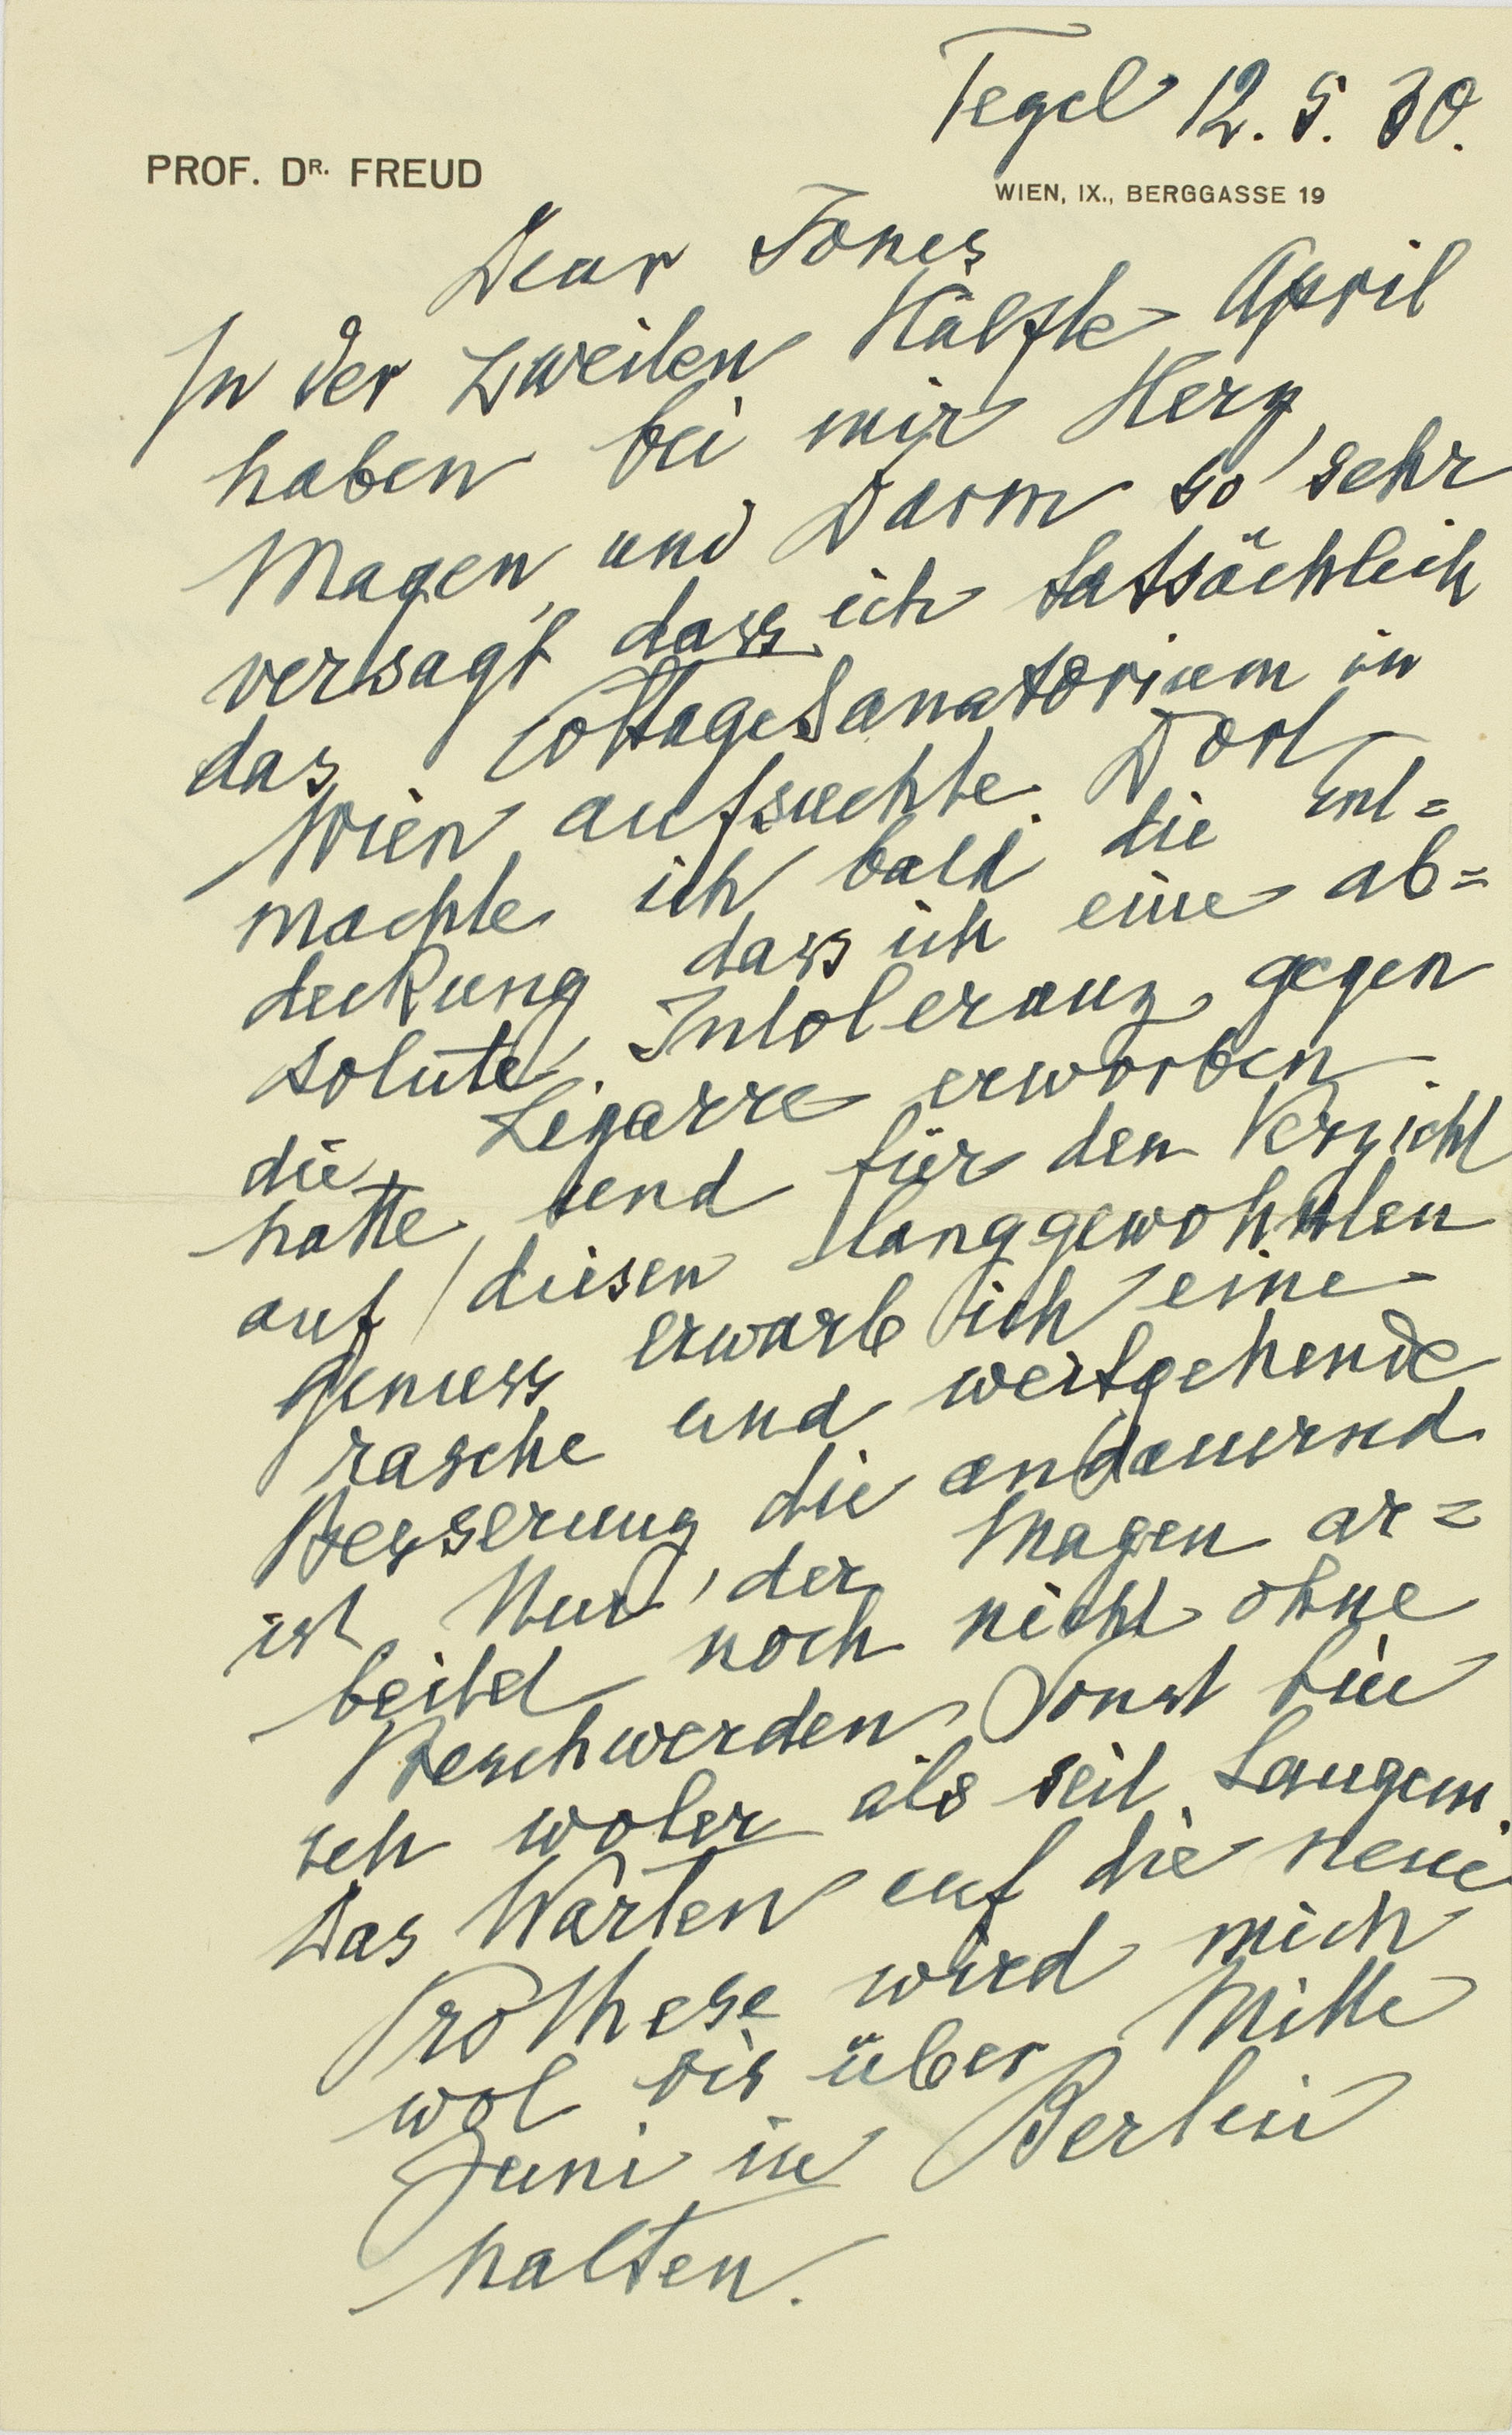 Tegel 12. 5. 30.
PROF. DR. FREUD
WIEN, IX., BERGGASSE 19
Dear Jones
In der zweiten Hälfte April
haben bei mir Herz,
Magen und Darm so sehr
versagt, dass ich tatsächlich
das Cottage Sanatorium in
Wien aufsuchte. Dort
machte ich bald die Ent=
deckung, dass ich eine ab=
solute Intoleranz gegen
die Zigarre erworben
hatte, und für den Verzicht
auf diesen langgewohnten
Genuss erwarb ich eine
rasche und weitgehende
Besserung, die andauernd
ist. Nur der Magen ar=
beitet noch nicht ohne
Beschwerden. Sonst bin
ich woler als seit Langem.
Das Warten auf die neue
Prothese wird mich
wol bis über Mitte
Juni in Berlin
halten.